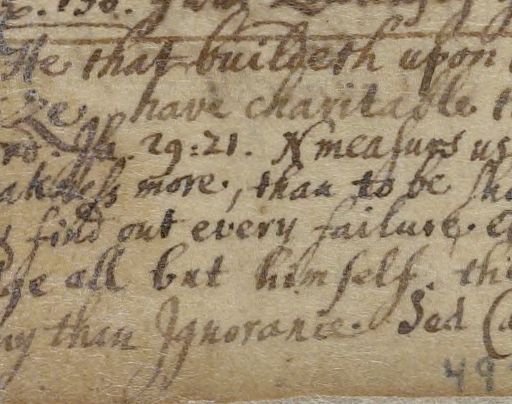 He that buildeth upon
have charitable
Isa. 29:21. N measurs us
more, than to be sha
find out every failure.
all but himself. thi
ny than Ignorance. Sed
49